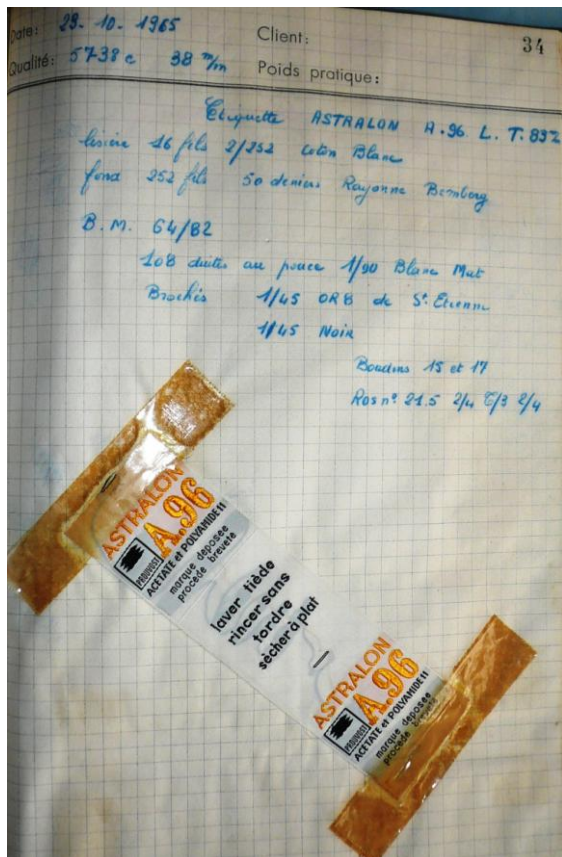 Date: 29-10-1965 Client: 34
Qualité: 5738 c 38 m/m Poids pratique:
Etiquette ASTRALON A.96 L.T. 892
lisière 16 fils 2/252 coton Blanc
fond 252 fils 50 deniers Rayonne Bemberg
B.M. 64/82
108 duites au pouce 1/90 Blanc Mat
Brochés 1/45 OR8 de St. Etienne
1/45 Noir
Boudins 15 et 17
Ros nº 21.5 2/4 2/4
ASTRALON
A.96
PROUVOST
ACETATE et POLYAMIDE 11
marque deposee
procede brevete
laver tiède
rincer sans
tordre
sècher à plat
ASTRALON
A.96
PROUVOST
ACETATE et POLYAMIDE 11
marque deposee
procede brevete